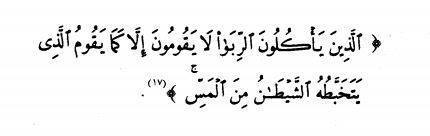 ﴿ ٱلَّذِينَ يَأۡكُلُونَ ٱلرِّبَوٰاْ لَا يَقُومُونَ إِلَّا كَمَا يَقُومُ ٱلَّذِى
يَتَخَبَّطُهُ ٱلشَّيۡطَـٰنُ مِنَ ٱلۡمَسِّۚ ﴾(١٧).